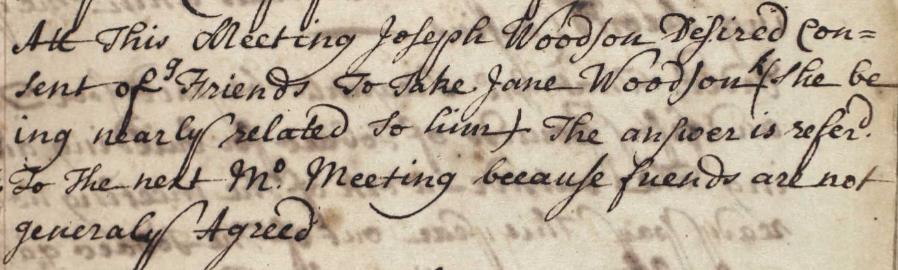 Att This Meeting Joseph Woodson Desired Con=
sent of Friends To Take Jane Woodson (She be
ing nearly related to him) The answer is refer.d
To The next Mo. Meeting because friends are not
generaly Agreed